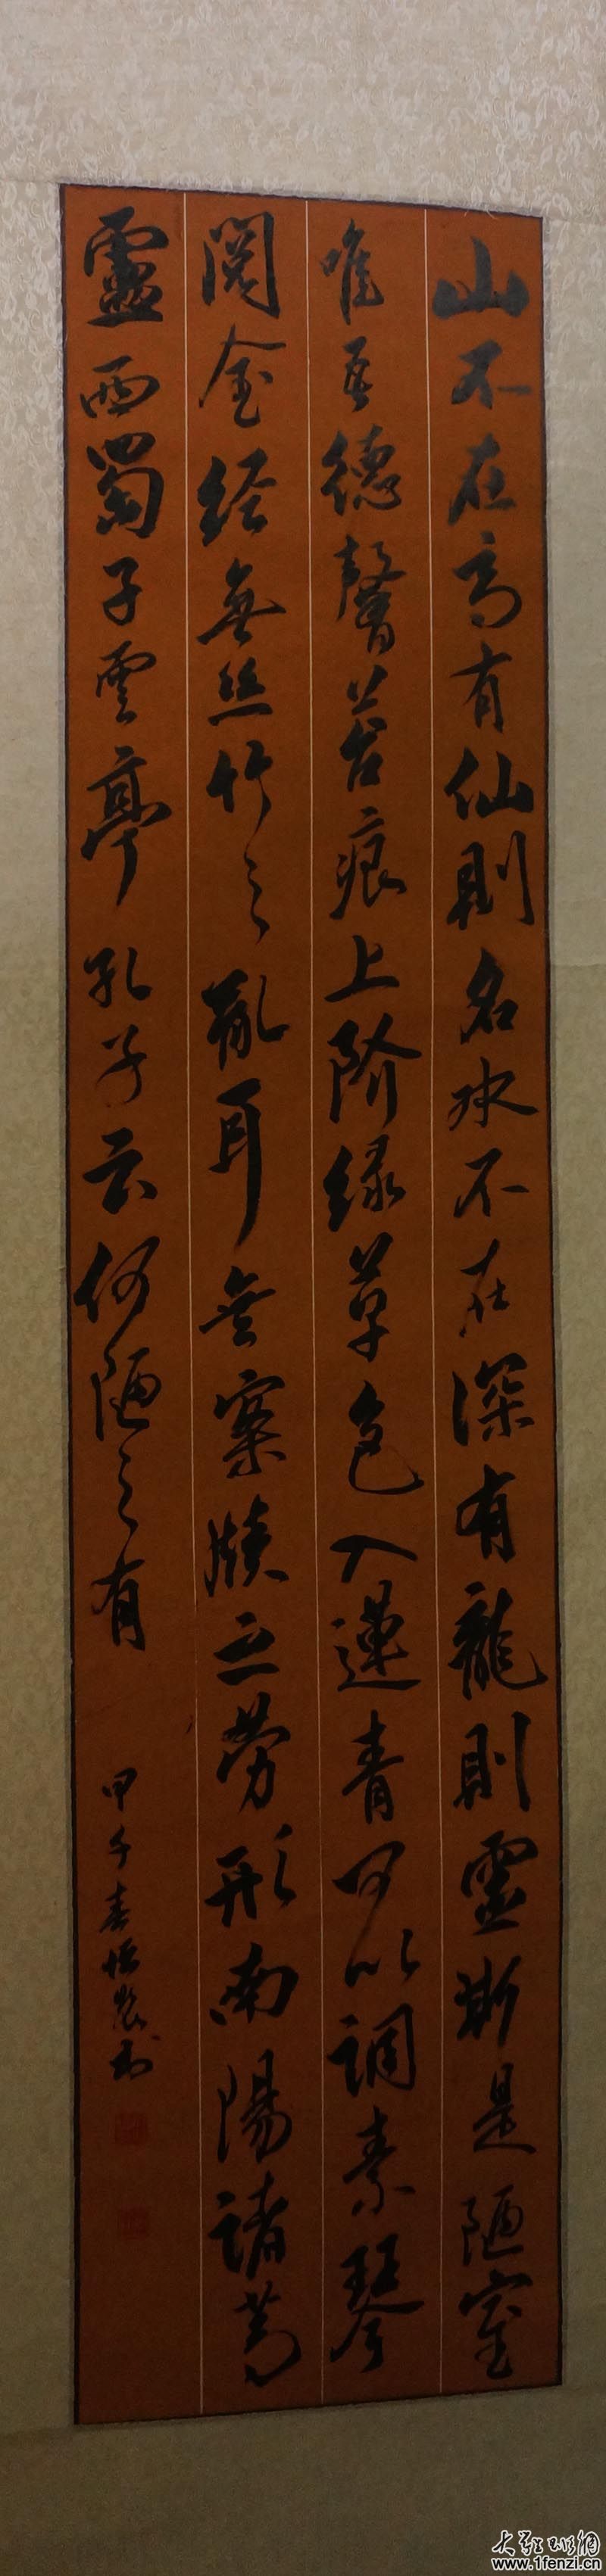 山不在高有仙則名水不在深有龍則靈斯是陋室
唯吾德馨苔痕上阶绿草色入蓮青可以調素琴
閲金经無丝竹之亂耳無案牍之勞形南陽諸葛
靈西蜀子雲亭孔子云何陋之有
甲午春书
大众网
www.1fenzi.cn